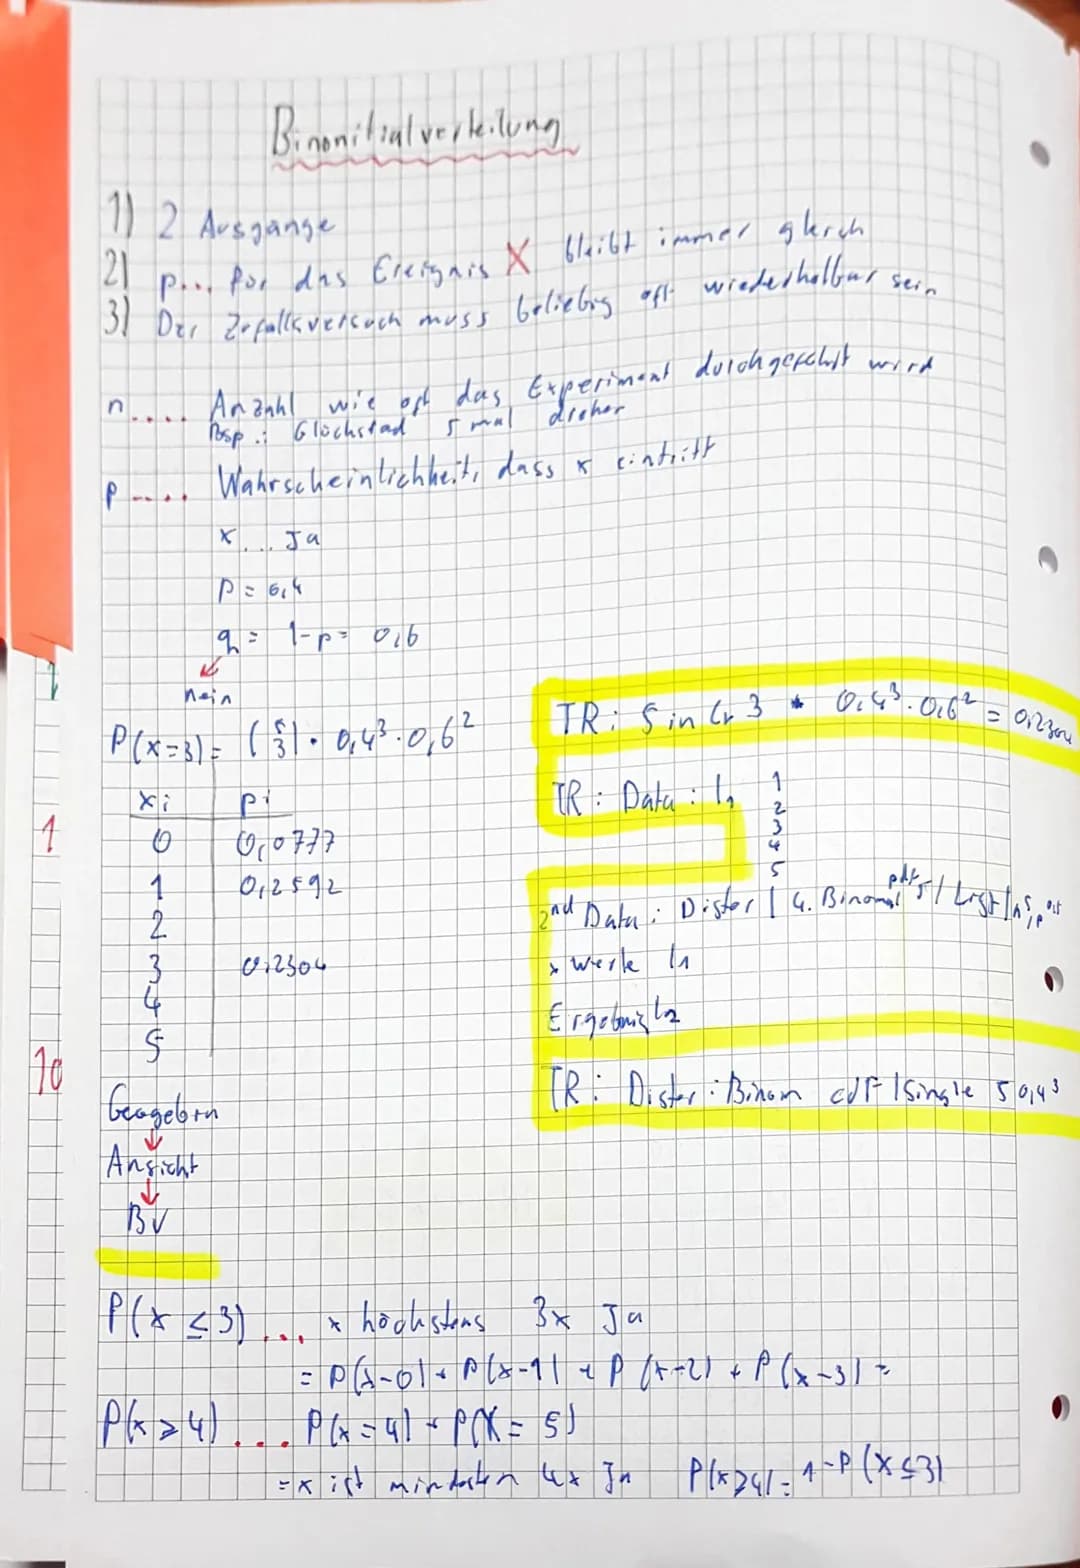 Binomitialverteilung
1) 2 Ausgänge
2) p... für das Ereignis X bleibt immer gleich
3) Der Zufallsversuch muss beliebig oft wiederholbar sein
n.... Anzahl wie oft das Experiment durchgeführt wird
Bsp.: Glücksrad 5 mal drehen
p.... Wahrscheinlichkeit, dass x eintritt
x... Ja
p = 0,4
q = 1-p = 0,6
nein
P(x=3) = (5 3) · 0,4³ · 0,6²
TR: 5 in Cr 3 * 0,4³ · 0,6² = 0,2304
xi pi
0 0,0777
1 0,2592
2
3 0,2304
4
5
TR: Data: l1 1
2
3
4
5
2nd Data: Dister | 4. Binomal pdf
x Werte l1
Ergebnis l2
TR: Dister: Binom cdf | Single 5 0,4 3
Geogebra
Ansicht
BV
P(x ≤ 3) ... x höchstens 3x Ja
= P(x-0) + P(x-1) + P(x-2) + P(x-3) =
P(x ≥ 4) ... P(x=4) + P(X=5)
= x ist mindesten 4x Ja P(x≥4) = 1-P(x≤3)
1
10